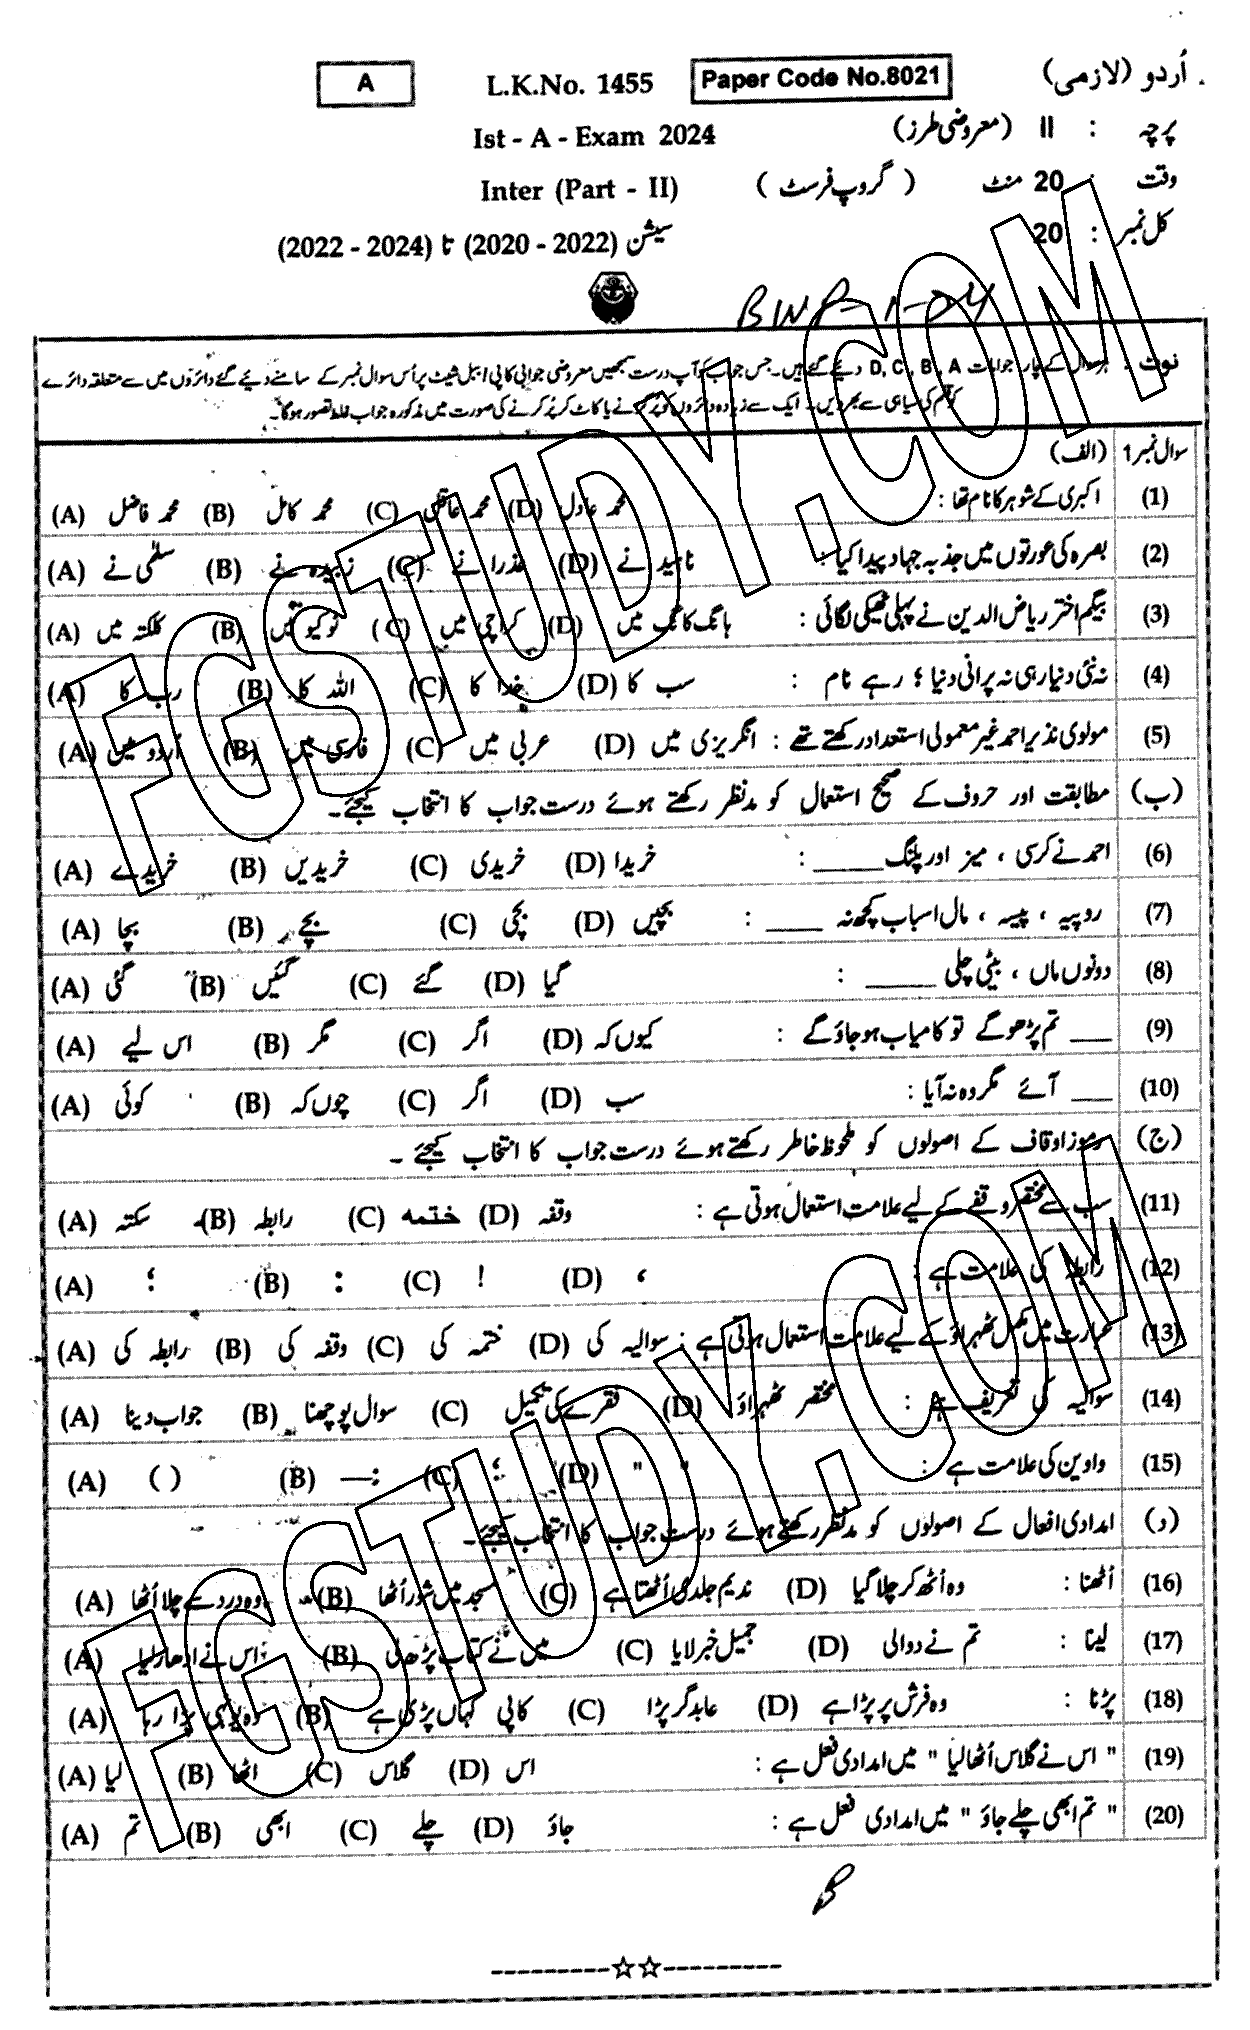 اُردو (لازمی) Paper Code No.8021 L.K.No. 1455 A
پرچہ : II (معروضی طرز) Ist - A - Exam 2024
وقت : 20 منٹ (گروپ فرسٹ) Inter (Part - II)
کل نمبر : 20 سیشن (2020 - 2022) تا (2022 - 2024)
BWP-1-24
نوٹ : ہر سوال کے چار جوابات D, C, B, A دیئے گئے ہیں۔ جس جواب کو آپ درست سمجھیں معروضی جوابی کاپی / ببل شیٹ پر اُس سوال نمبر کے سامنے دیئے گئے دائروں میں سے متعلقہ دائرے
کو قلم کی سیاہی سے بھر دیں۔ ایک سے زیادہ دائروں کو پُر کرنے یا کاٹ کر پُر کرنے کی صورت میں مذکورہ جواب غلط تصور ہوگا۔
سوال نمبر 1 (الف)
(1) اکبری کے شوہر کا نام تھا : (A) محمد فاضل (B) محمد کامل (C) محمد عاقل (D) محمد عادل
(2) بصرہ کی عورتوں میں جذبہ جہاد پیدا کیا : (A) سلمٰی نے (B) زبیدہ نے (C) عذرا نے (D) ناہید نے
(3) بیگم اختر ریاض الدین نے پہلی ٹھیکی لگائی : (A) کلکتہ میں (B) ٹوکیو میں (C) کراچی میں (D) ہانگ کانگ میں
(4) نہ نئی دنیا رہی نہ پرانی دنیا ؛ رہے نام : (A) رب کا (B) اللہ کا (C) خدا کا (D) سب کا
(5) مولوی نذیر احمد غیر معمولی استعداد رکھتے تھے : (A) اُردو میں (B) فارسی میں (C) عربی میں (D) انگریزی میں
(ب) مطابقت اور حروف کے صحیح استعمال کو مدنظر رکھتے ہوئے درست جواب کا انتخاب کیجئے۔
(6) احمد نے کرسی ، میز اور پلنگ ____ : (A) خریدے (B) خریدیں (C) خریدی (D) خریدا
(7) روپیہ ، پیسہ ، مال اسباب کچھ نہ ____ : (A) بچا (B) بچے (C) بچی (D) بچیں
(8) دونوں ماں ، بیٹی چلی ____ : (A) گئی (B) گئیں (C) گئے (D) گیا
(9) ___ تم پڑھو گے تو کامیاب ہو جاؤ گے : (A) اس لیے (B) مگر (C) اگر (D) کیوں کہ
(10) ___ آئے مگر وہ نہ آیا : (A) کوئی (B) چوں کہ (C) اگر (D) سب
(ج) رموز اوقاف کے اصولوں کو ملحوظ خاطر رکھتے ہوئے درست جواب کا انتخاب کیجئے ۔
(11) سب سے مختصر وقفے کے لیے علامت استعمال ہوتی ہے : (A) سکتہ (B) رابطہ (C) ختمہ (D) وقفہ
(12) رابطہ کی علامت ہے : (A) ؛ (B) : (C) ! (D) ،
(13) عبارت میں مکمل ٹھہراؤ کے لیے علامت استعمال ہوتی ہے : (A) رابطہ کی (B) وقفہ کی (C) ختمہ کی (D) سوالیہ کی
(14) سوالیہ کی تعریف ہے : (A) جواب دینا (B) سوال پوچھنا (C) فقرے کی تکمیل (D) مختصر ٹھہراؤ
(15) واوین کی علامت ہے : (A) ( ) (B) :— (C) ؛ (D) " "
(د) امدادی افعال کے اصولوں کو مدنظر رکھتے ہوئے درست جواب کا انتخاب کیجئے۔
(16) اُٹھنا : (A) وہ درد سے چلا اُٹھا (B) مسجد میں شور اُٹھا (C) ندیم جلدی اُٹھتا ہے (D) وہ اُٹھ کر چلا گیا
(17) لینا : (A) اس نے ادھار لیا (B) میں نے کتاب پڑھ لی (C) جمیل خبر لایا (D) تم نے دوالی
(18) پڑنا : (A) وہ یونہی پڑا رہا (B) کاپی کہاں پڑی ہے (C) عابد گر پڑا (D) وہ فرش پر پڑا ہے
(19) " اس نے گلاس اُٹھا لیا " میں امدادی فعل ہے : (A) لیا (B) اٹھا (C) گلاس (D) اس
(20) " تم ابھی چلے جاؤ " میں امدادی فعل ہے : (A) تم (B) ابھی (C) چلے (D) جاؤ
FGSTUDY.COM
FGSTUDY.COM